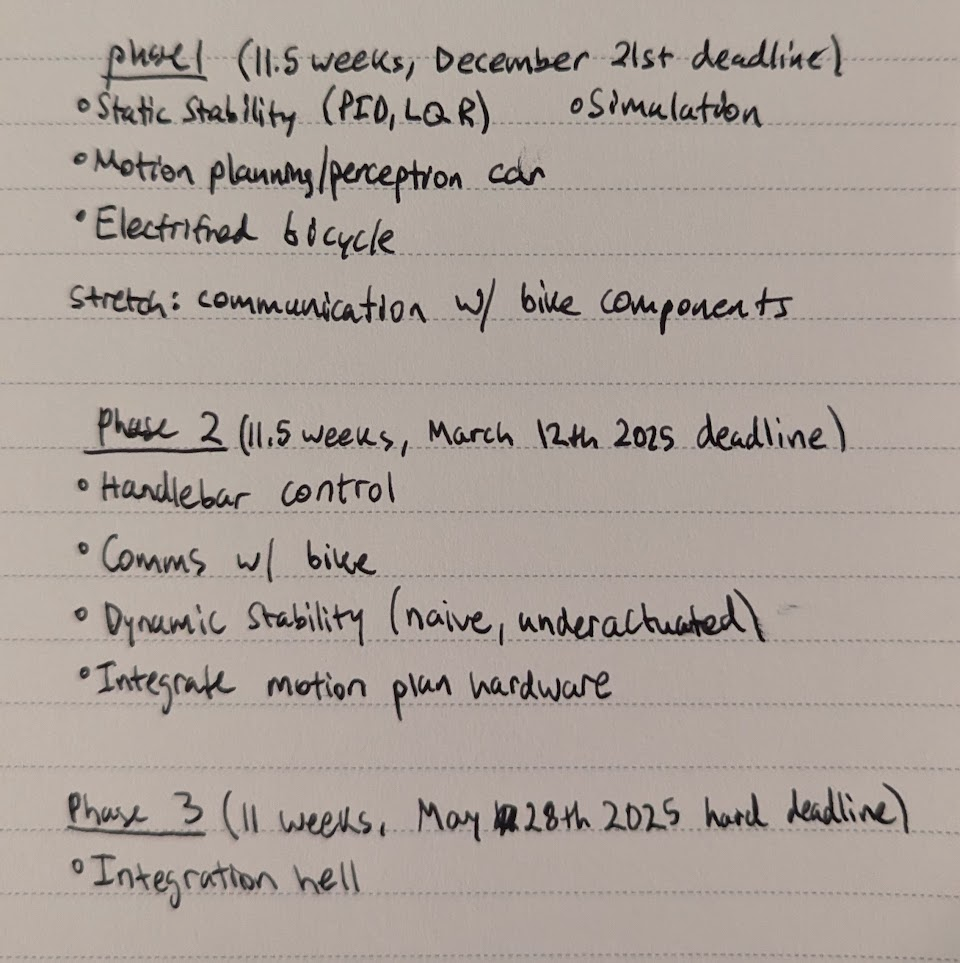 phase 1 (11.5 weeks, December 21st deadline)
• Static Stability (PID, LQR) • Simulation
• Motion planning/perception car
• Electrified bicycle
Stretch: communication w/ bike components
Phase 2 (11.5 weeks, March 12th 2025 deadline)
• Handlebar control
• Comms w/ bike
• Dynamic Stability (naive, underactuated)
• Integrate motion plan hardware
Phase 3 (11 weeks, May 28th 2025 hard deadline)
• Integration hell